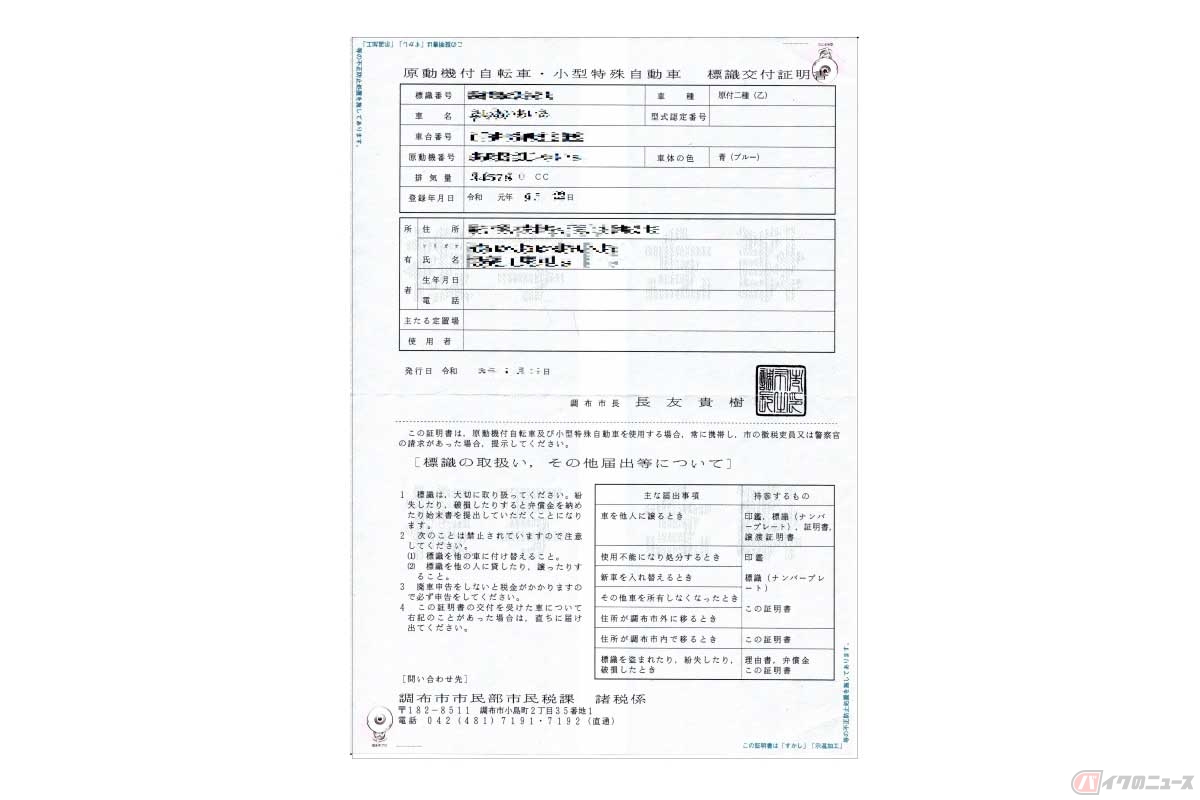 原動機付自転車・小型特殊自動車　標識交付証明書
標識番号
車種　原付二種（乙）
車名
型式認定番号
車台番号
原動機番号
車体の色　青（ブルー）
排気量　CC
登録年月日　令和　元年　日
所有者
住所
氏名
生年月日
電話
主たる定置場
使用者
発行日　令和　日
調布市長　長友貴樹
この証明書は、原動機付自転車及び小型特殊自動車を使用する場合、常に携帯し、市の徴税吏員又は警察官
の請求があった場合、提示してください。
［標識の取扱い，その他届出等について］
1　標識は、大切に取り扱ってください。紛
失したり、破損したりすると弁償金を納め
たり始末書を提出していただくことになり
ます。
2　次のことは禁止されていますので注意
してください。
⑴　標識を他の車に付け替えること。
⑵　標識を他の人に貸したり、譲ったりす
ること。
3　廃車申告をしないと税金がかかりますの
で必ず申告をしてください。
4　この証明書の交付を受けた車について
右記のことがあった場合は、直ちに届け
出てください。
主な届出事項　持参するもの
車を他人に譲るとき
印鑑、標識（ナンバ
ープレート）、証明書、
譲渡証明書
使用不能になり処分するとき
新車を入れ替えるとき
その他車を所有しなくなったとき
住所が調布市外に移るとき
印鑑
標識（ナンバープレ
ート）
この証明書
住所が調布市内で移るとき　この証明書
標識を盗まれたり、紛失したり、
破損したとき
理由書、弁償金
この証明書
［問い合わせ先］
調布市市民部市民税課　諸税係
〒182-8511　調布市小島町2丁目35番地1
電話　042（481）7191・7192（直通）
この証明書は「すかし」「示温加工」
等の不正防止処置を施してあります。
バイクのニュース